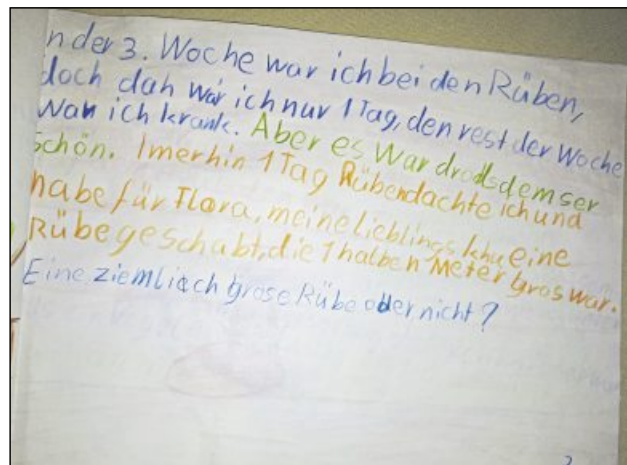 n der 3. Woche war ich bei den Rüben,
doch dah war ich nur 1 Tag, den rest der Woche
War ich krank. Aber es War drodsdem ser
Schön. Imerhin 1 Tag Rüben dachte ich und
habe für Flora, meine lieblings khu eine
Rübe geschabt, die 1 halben Meter gros war.
Eine ziemliach grose Rübe oder nicht?